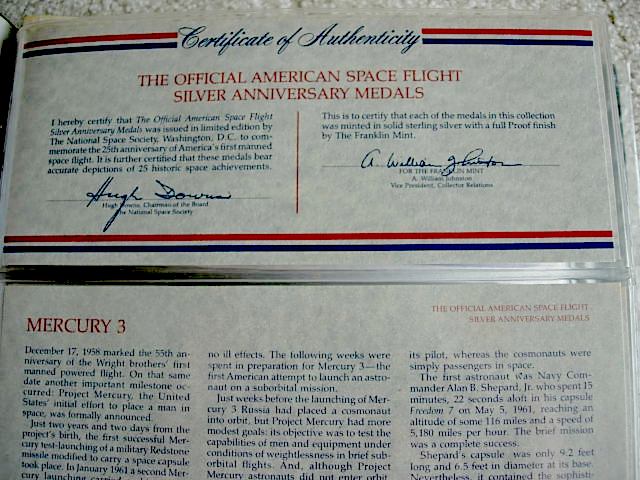 Certificate of Authenticity
THE OFFICIAL AMERICAN SPACE FLIGHT
SILVER ANNIVERSARY MEDALS
I hereby certify that The Official American Space Flight
Silver Anniversary Medals was issued in limited edition by
The National Space Society, Washington, D.C. to com-
memorate the 25th anniversary of America's first manned
space flight. It is further certified that these medals bear
accurate depictions of 25 historic space achievements.
Hugh Downs
Hugh Downs, Chairman of the Board
The National Space Society
This is to certify that each of the medals in this collection
was minted in solid sterling silver with a full Proof finish
by The Franklin Mint.
A. William Johnston
FOR THE FRANKLIN MINT
A. William Johnston
Vice President, Collector Relations
THE OFFICIAL AMERICAN SPACE FLIGHT
SILVER ANNIVERSARY MEDALS
MERCURY 3
December 17, 1958 marked the 55th an-
niversary of the Wright brothers' first
manned powered flight. On that same
date another important milestone oc-
curred: Project Mercury, the United
States' initial effort to place a man in
space, was formally announced.
Just two years and two days from the
project's birth, the first successful Mer-
cury test-launching of a military Redstone
missile modified to carry a space capsule
took place. In January 1961 a second Mer-
cury launching carried
no ill effects. The following weeks were
spent in preparation for Mercury 3—the
first American attempt to launch an astro-
naut on a suborbital mission.
Just weeks before the launching of Mer-
cury 3 Russia had placed a cosmonaut
into orbit, but Project Mercury had more
modest goals: its objective was to test the
capabilities of men and equipment under
conditions of weightlessness in brief sub-
orbital flights. And, although Project
Mercury astronauts did not enter orbit,
its pilot, whereas the cosmonauts were
simply passengers in space.
The first astronaut was Navy Com-
mander Alan B. Shepard, Jr. who spent 15
minutes, 22 seconds aloft in his capsule
Freedom 7 on May 5, 1961, reaching an
altitude of some 116 miles and a speed of
5,180 miles per hour. The brief mission
was a complete success.
Shepard's capsule was only 9.2 feet
long and 6.5 feet in diameter at its base.
Nevertheless, it contained the sophisti-